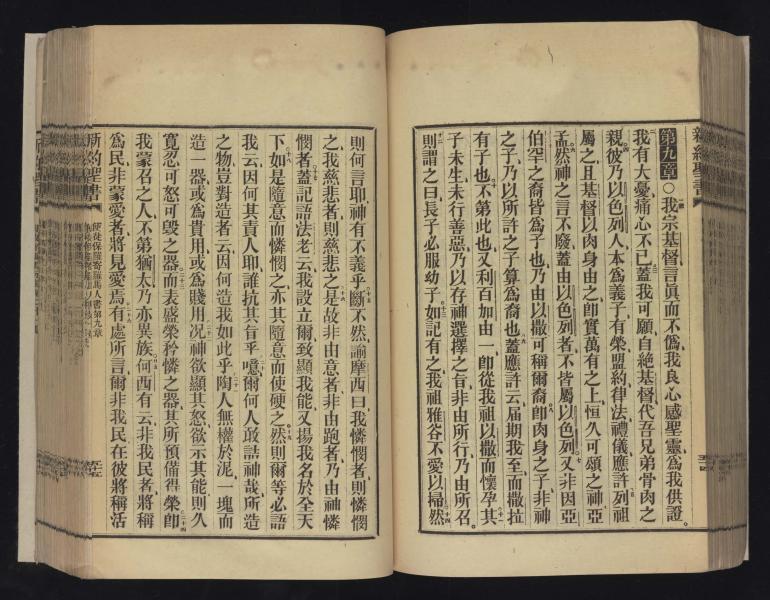 新約聖書
第九章○我宗基督言眞而不僞我良心感聖靈爲我供證
我有大憂痛心不已蓋我可願自絕基督代吾兄弟骨肉之
親彼乃以色列人本爲義子有榮盟約律法禮儀應許列祖
屬之且基督以肉身由之卽實萬有之上恒久可頌之神亞
孟然神之言不廢蓋由以色列者不皆屬以色列又非因亞
伯罕之裔皆爲子也乃由以撒可稱爾裔卽肉身之子非神
之子乃以所許之子算爲裔也蓋應許云届期我至而撒拉
有子也不第此也又利百加由一卽從我祖以撒而懷孕其
子未生未行善惡乃以存神選擇之旨非由所行乃由所召
則謂之曰長子必服幼子如記有之我祖雅谷不愛以掃然
則何言耶神有不義乎斷不然諭摩西曰我憐憫者則憐憫
之我慈悲者則慈悲之是故非由意者非由跑者乃由神憐
憫者蓋記語法老云我設立爾致顯我能又揚我名於全天
下如是隨意而憐憫之亦其隨意而使硬之然則爾等必語
我云因何其責人耶誰抗其旨乎噫爾何人敢詰神哉所造
之物豈對造者云因何造我如此乎陶人無權於泥一塊而
造一器或爲貴用或爲賤用况神欲顯其怒欲示其能則久
寬忍可怒可毀之器而表盛榮矜憐之器其所預備得榮卽
我蒙召之人不第猶太乃亦異族何西有云非我民者將稱
爲民非蒙愛者將見愛焉有處所言爾非我民在彼將稱活
新約聖書
使徒保羅寄羅馬人書第九章